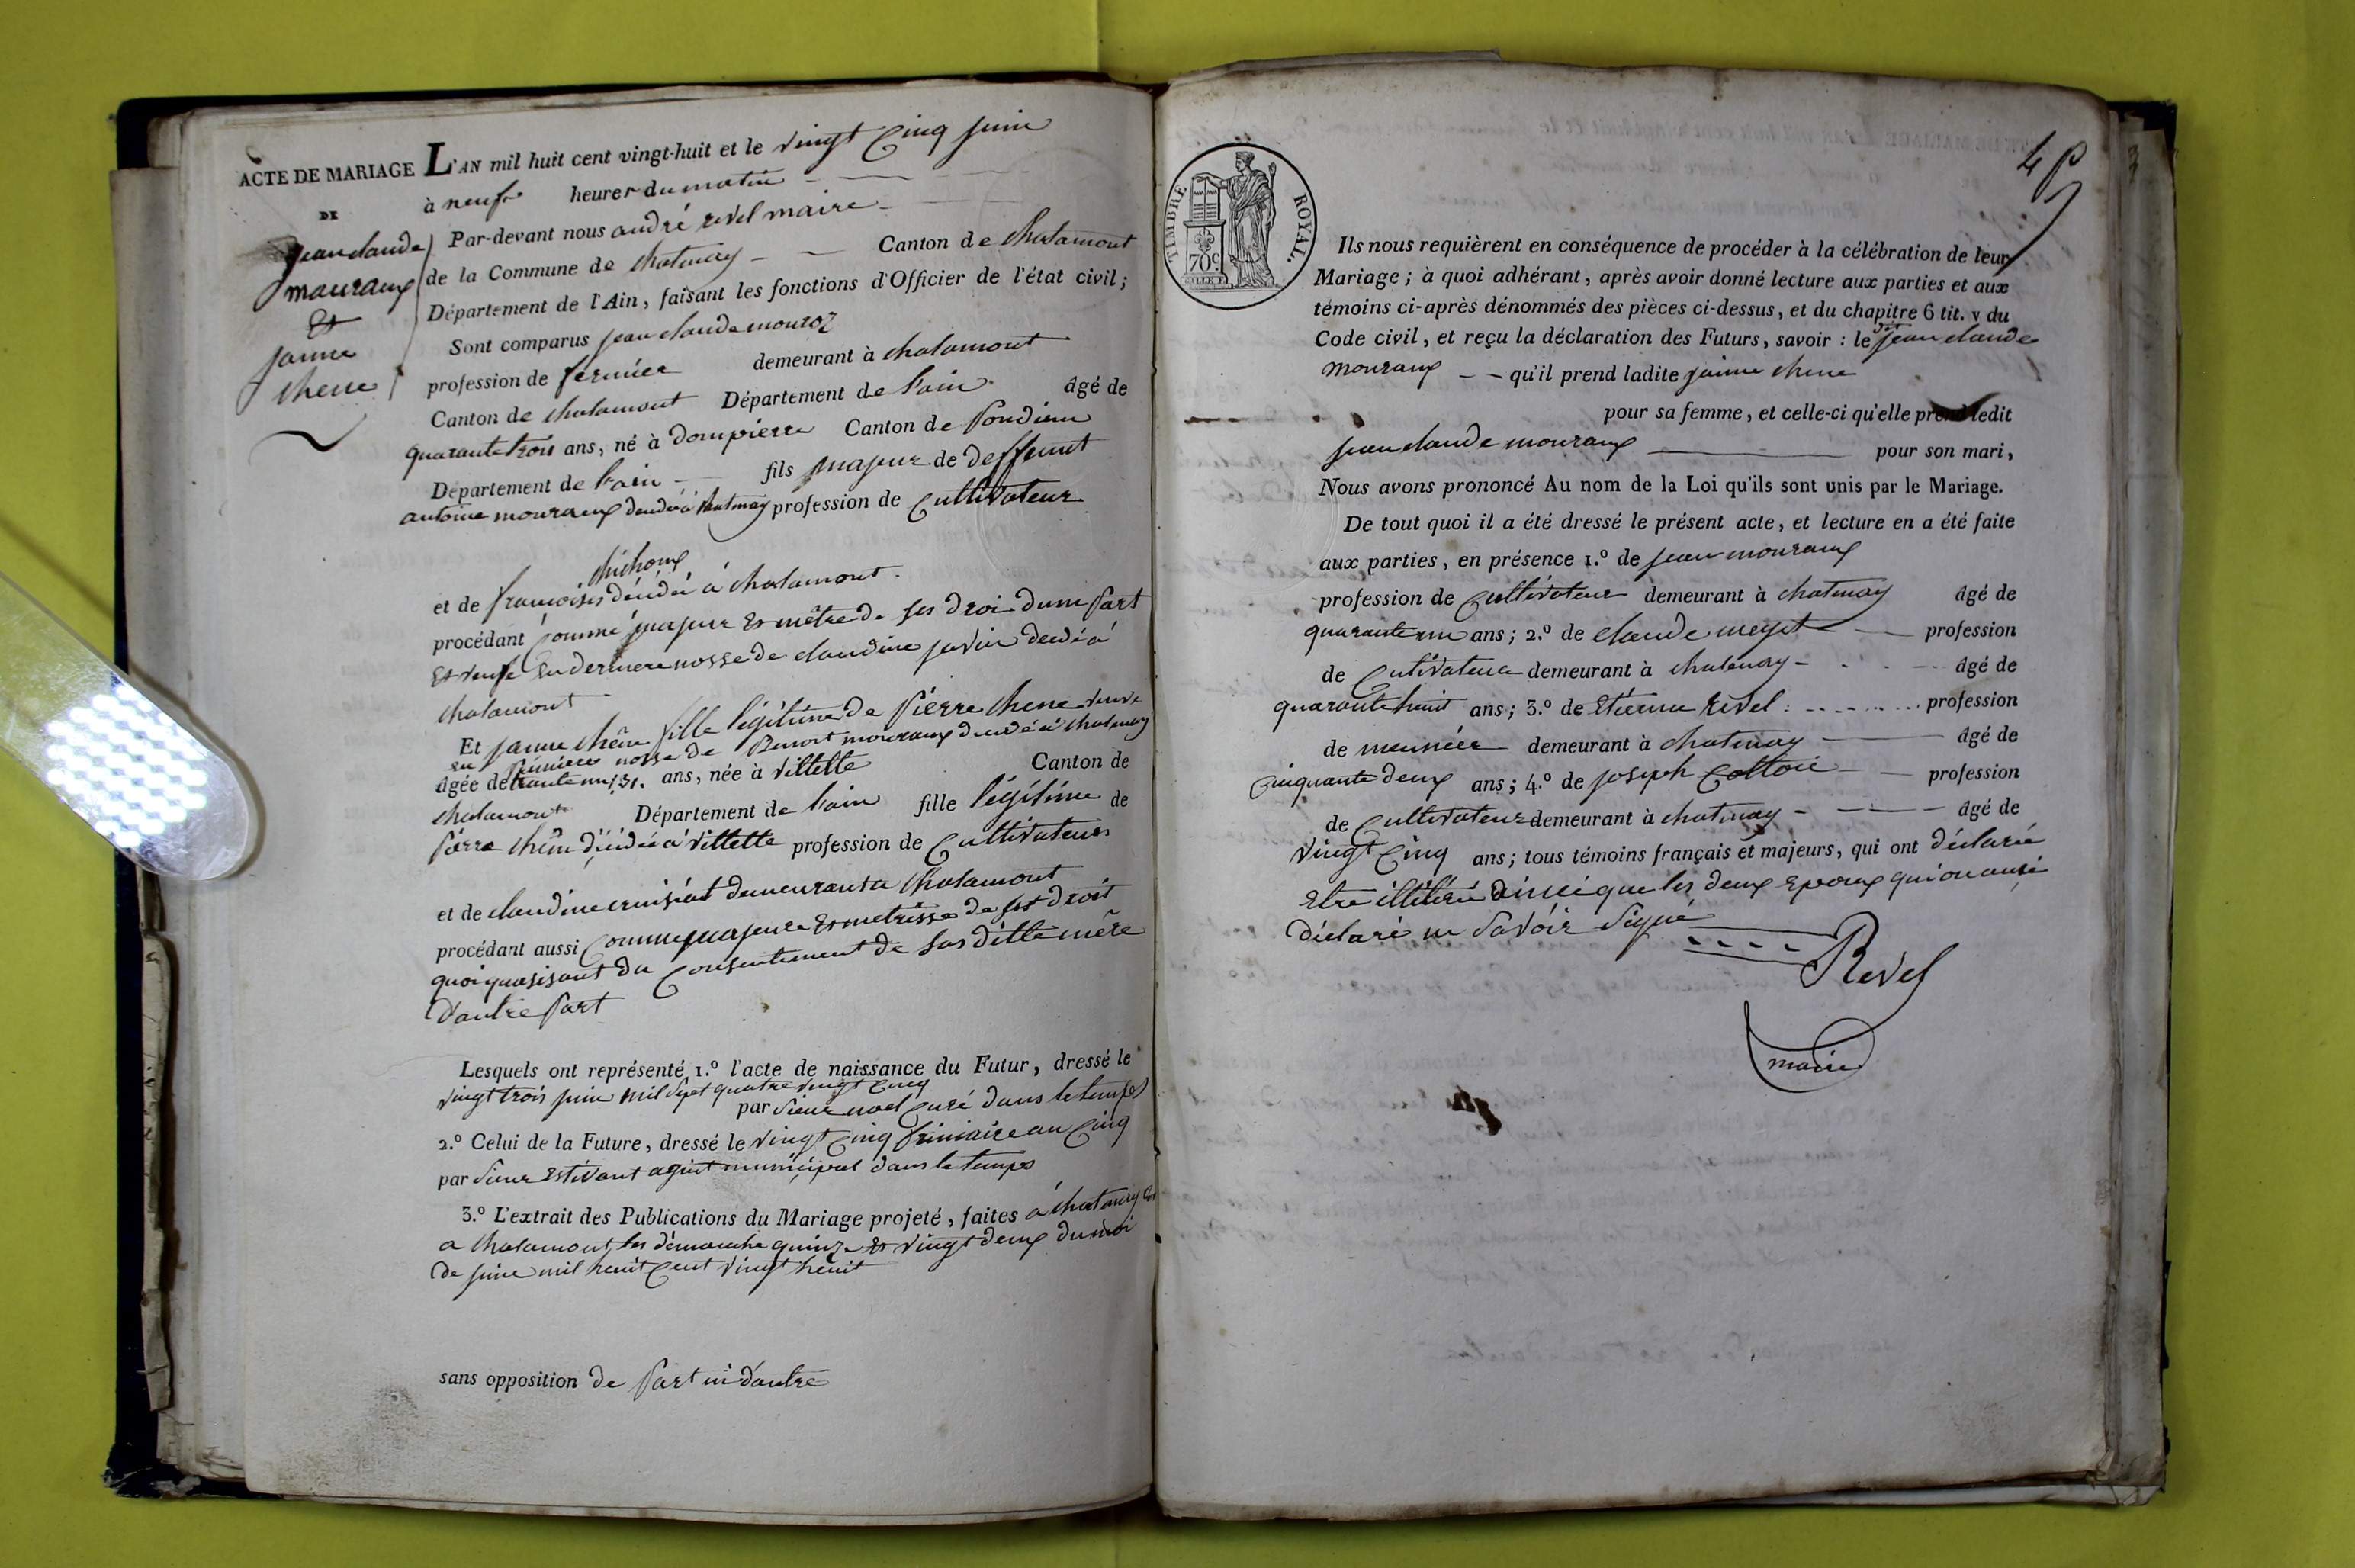 ACTE DE MARIAGE L'AN mil huit cent vingt-huit et le vingt cinq juin
DE
à neuf heures du matin
jean claude
mouraux
Et
janne
chene
Par-devant nous andré revel maire
de la Commune de chatenay Canton de chalamont
Département de l'Ain, faisant les fonctions d'Officier de l'état civil;
Sont comparus jean claude mouroz
profession de fermier demeurant à chalamont
Canton de chalamont Département de l'ain âgé de
quarante trois ans, né à dompierre Canton de Pondien
Département de l'ain fils majeur de deffunt
antoine mouraux dcédé à chatenay profession de Cultivateur
chichoux
et de francoise décédé à chalamont
procédant comme majeur Et mêtre de ses droi dune Part
Et veuf en derniere nosse de claudine javin dcédé à
chalamont
Et janne chêne fille légitime de Pierre chene veuve
en premieres nosse de Benoit mouraux décédé à chatenay
âgée de trante un 31. ans, née à villette Canton de
chalamont Département de l'ain fille légitime de
Pierre chêne décédé à villette profession de Cultivateur
et de claudine demeurant a chalamont
procédant aussi comme majeure Et metrisse de ses droit
quoiquasisant du Consentement de sas ditte mère
d'autre Part
Lesquels ont représenté, 1.º l'acte de naissance du Futur, dressé le
vingt trois juin mil sept quatre vingt cinq
par sieur noel curé dans le temps
2.º Celui de la Future, dressé le vingt cinq frimaire an cinq
par sieur Estivant agent municipal dans le temps
3.º L'extrait des Publications du Mariage projeté, faites à chatenay Et
a chalamont les dimanche quinze Et vingt deux du moi
de juin mil huit cent vingt huit
sans opposition de Part ni d'autre
4
TIMBRE ROYAL.
70c.
Ils nous requièrent en conséquence de procéder à la célébration de leur
Mariage; à quoi adhérant, après avoir donné lecture aux parties et aux
témoins ci-après dénommés des pièces ci-dessus, et du chapitre 6 tit. v du
Code civil, et reçu la déclaration des Futurs, savoir: le dit jean claude
mouraux qu'il prend ladite janne chene
pour sa femme, et celle-ci qu'elle prend ledit
jean claude mouraux pour son mari,
Nous avons prononcé Au nom de la Loi qu'ils sont unis par le Mariage.
De tout quoi il a été dressé le présent acte, et lecture en a été faite
aux parties, en présence 1.º de jean mouraux
profession de Cultivateur demeurant à chatenay âgé de
quarante un ans; 2.º de claude profession
de Cultivateur demeurant à chatenay âgé de
quarante huit ans; 3.º de Etienne Revel profession
de meunier demeurant à chatenay âgé de
Cinquante deux ans; 4.º de joseph profession
de Cultivateur demeurant à chatenay âgé de
vingt cinq ans; tous témoins français et majeurs, qui ont déclaré
Etre illitéré ainsi que les deux Epoux qui on aussi
déclaré ne savoir signé
Revel
maire